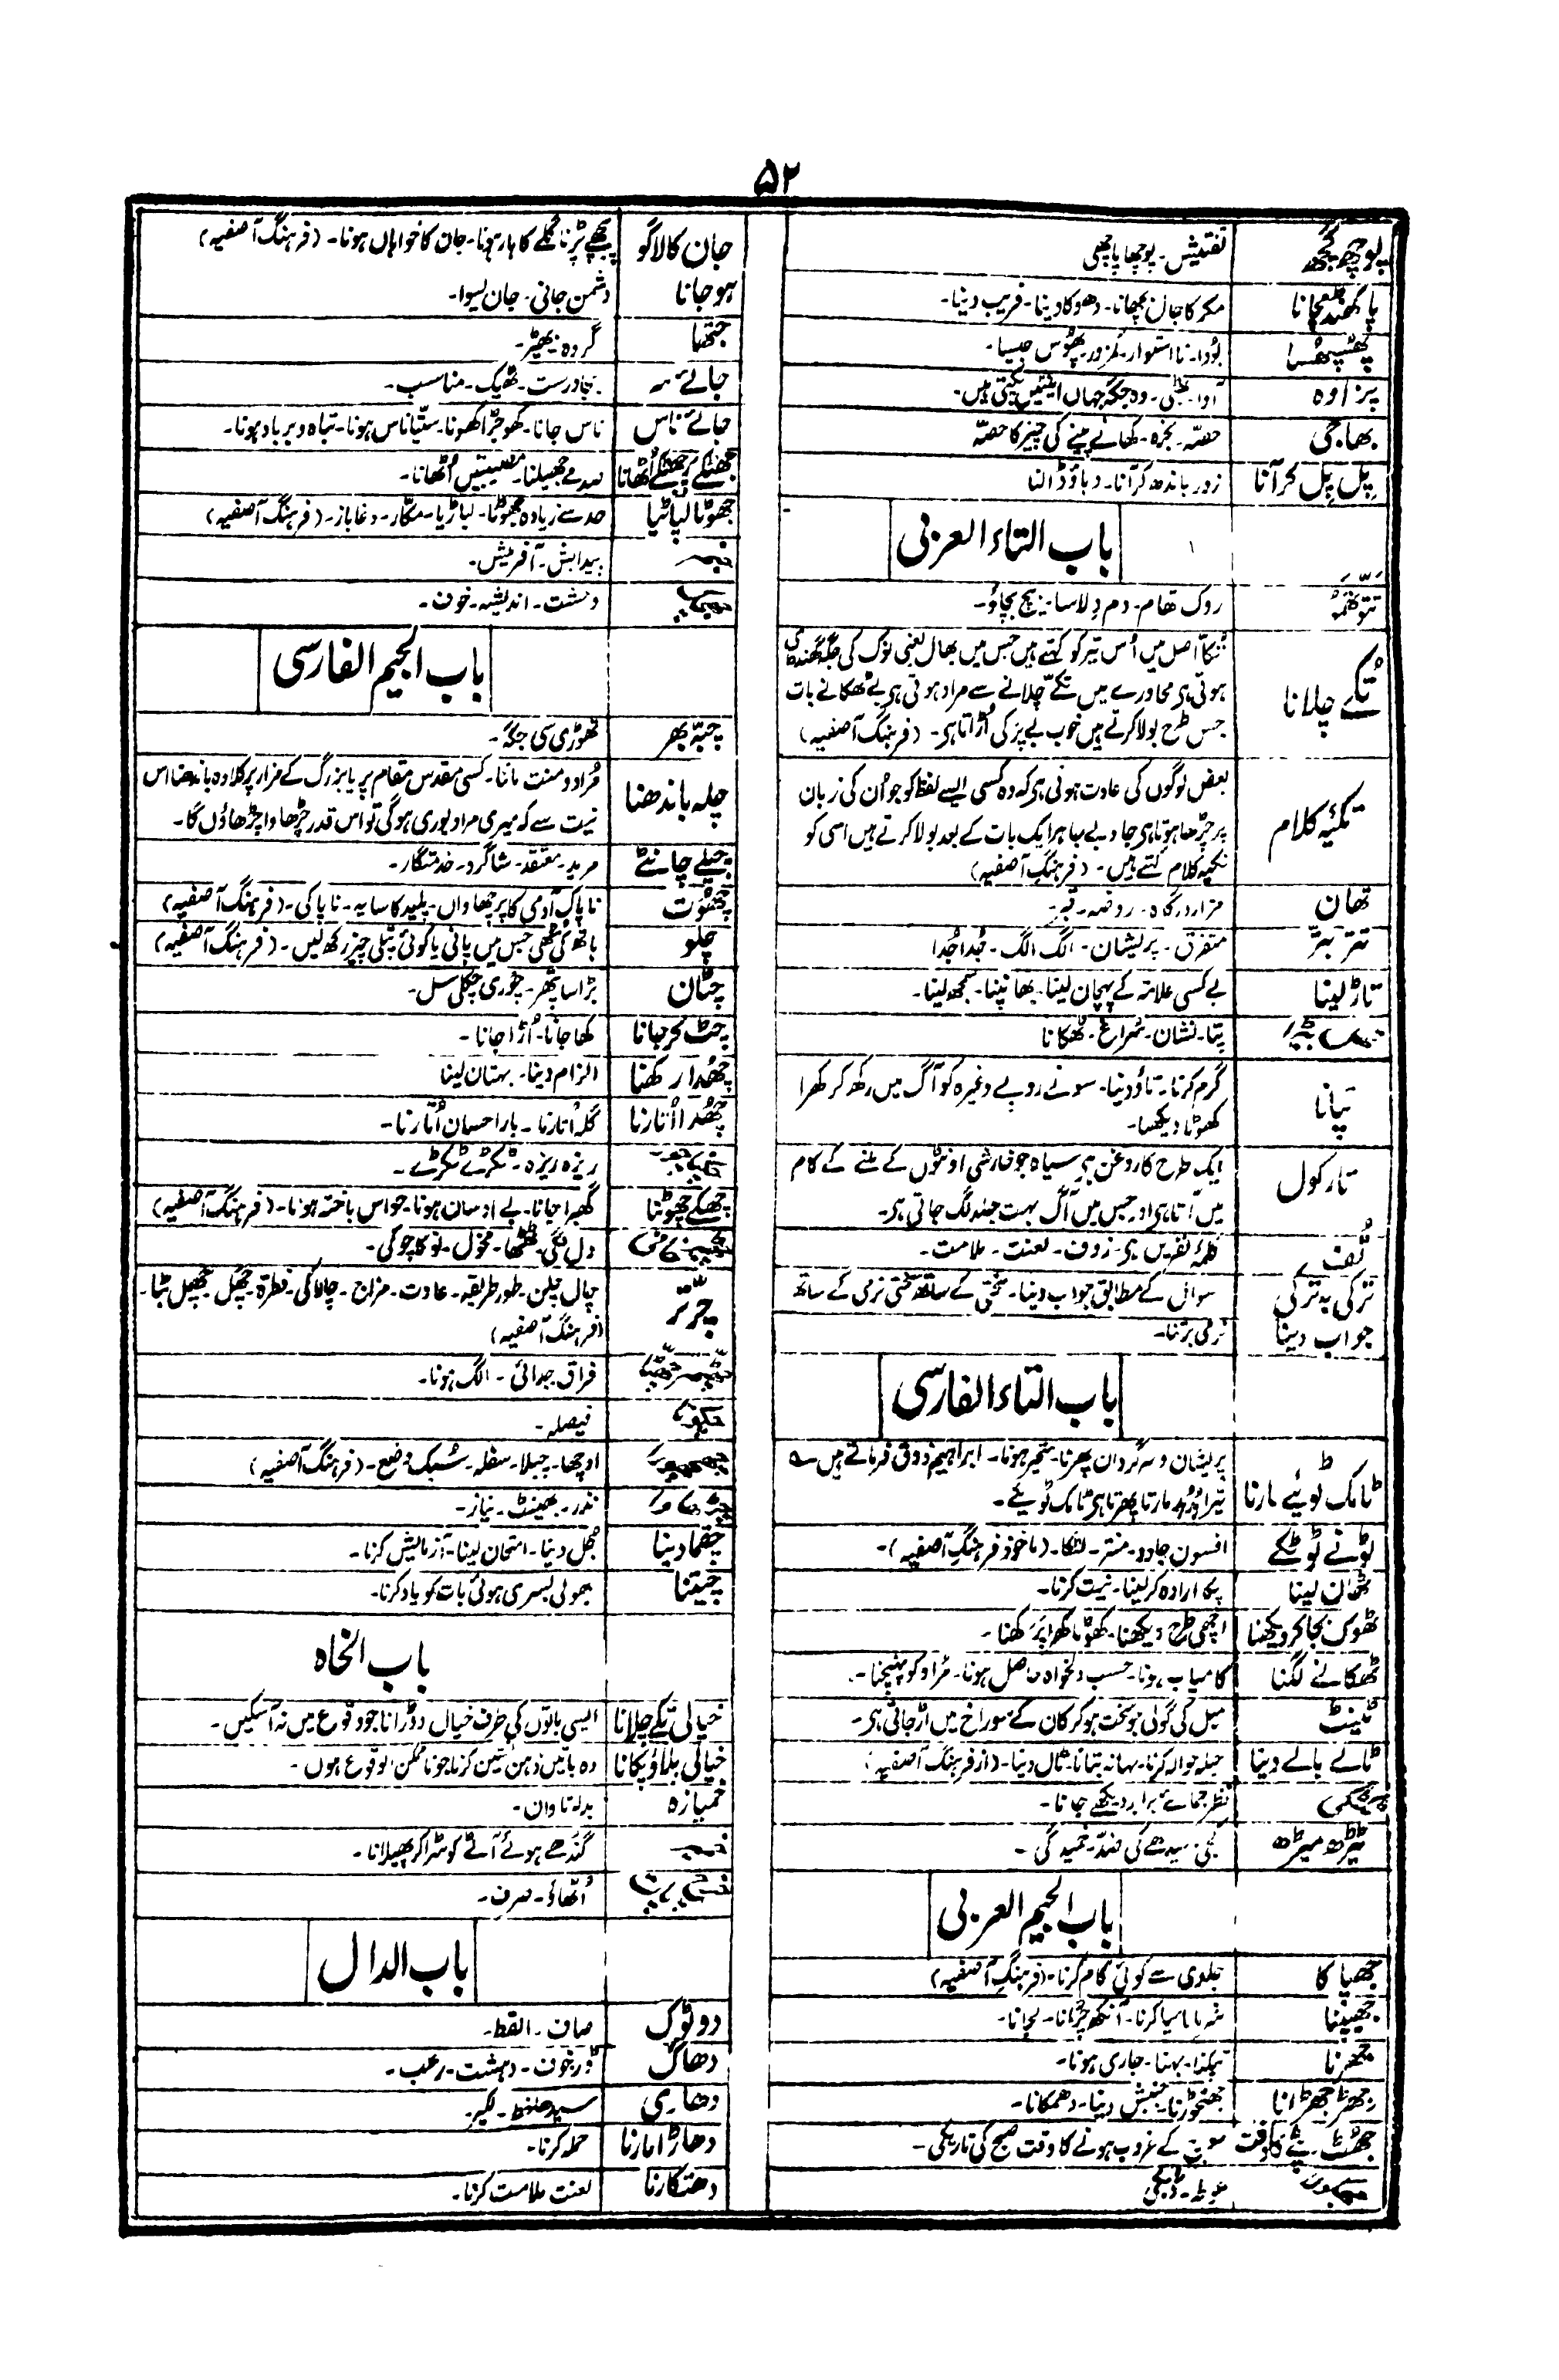 ۵۲
پوچھ گچھ تفتیش۔ پوچھا پاچھی
پاکھنڈ مچانا مکر کا جال بچھانا۔ دھوکا دینا۔ فریب دینا۔
پھُسپھُسا بودا۔ نا استوار۔ کمزور۔ پھُوس جیسا۔
پزاوہ آوا۔ بھٹی۔ وہ جگہ جہاں اینٹیں پکتی ہیں۔
بھاجی حصّہ۔ بخرہ۔ کھانے پینے کی چیز کا حصّہ
پِل پِل کر آنا زور باندھ کر آنا۔ دباؤ ڈالنا
باب التاء العربی
روک تھام۔ دم دلاسا۔ بیچ بچاؤ۔
تُکّے چلانا تُکّا اصل میں اُس تیر کو کہتے ہیں جس میں بھال یعنی نوک کی جگہ گھنڈی
ہوتی ہی محاورے میں تکّے چلانے سے مراد ہوتی ہی بے ٹھکانے بات
جس طرح بولا کرتے ہیں خوب بے پر کی اُڑاتا ہی۔ (فرہنگ آصفیہ)
تکیۂ کلام بعض لوگوں کی عادت ہوتی ہی کہ وہ کسی ایسے لفظ کو جو اُن کی زبان
پر چڑھا ہوتا ہی جا و بے جا ہر ایک بات کے بعد بولا کرتے ہیں اسی کو
تکیہ کلام کہتے ہیں۔ (فرہنگ آصفیہ)
تھان مزار درگاہ۔ روضہ۔ قبر۔
تتر بتر متفرق۔ پریشان۔ الگ الگ۔ جُدا جُدا
تاڑ لینا بے کسی علامتہ کے پہچان لینا۔ بھانپنا۔ سمجھ لینا۔
پتا۔ نشان۔ سُراغ۔ ٹھکانا
تپانا گرم کرنا۔ تاؤ دینا۔ سونے روپے وغیرہ کو آگ میں رکھ کر کھرا
کھوٹا دیکھنا۔
تارکول ایک طرح کا روغن ہی سیاہ جو خارشی اونٹوں کے ملنے کے کام
میں آتا ہی اور جس میں آگ بہت جلد لگ جاتی ہی۔
تُف کلمۂ نفریں ہی۔ زوف۔ لعنت۔ ملامت۔
ترکی بہ ترکی سوال کے مطابق جواب دینا۔ سختی کے ساتھ سختی نرمی کے ساتھ
جواب دینا نرمی برتنا۔
باب التاء الفارسی
ٹامک ٹوئیے مارنا پریشان و سرگردان پھرنا۔ متحیر ہونا۔ ابراہیم ذوق فرماتے ہیں ؎
مارتا پھرتا ہی ٹامک ٹوئیے۔
ٹونے ٹوٹکے افسون جادو۔ منتر۔ لٹکا۔ (ماخوذ فرہنگِ آصفیہ)۔
ٹھان لینا پکا ارادہ کر لینا۔ نیت کرنا۔
ٹھوک بجا کر دیکھنا اچھی طرح دیکھنا۔ کھوٹا کھرا پرَکھنا۔
ٹھکانے لگنا کامیاب ہونا۔ حسب دلخواہ حاصل ہونا۔ مُراد کو پہنچنا۔
ٹینٹ میل کی گولی جو سخت ہو کر کان کے سوراخ میں اڑ جاتی ہی۔
ٹالے بالے دینا حیلہ حوالہ کرنا۔ بہانہ بتانا۔ ٹال دینا۔ (از فرہنگ آصفیہ)
نظر جمائے برابر دیکھے جانا۔
ٹیڑھ میڑھ کجی سیدھے کی ضد۔ خمیدگی۔
باب الجیم العربی
جھپا کا جلدی سے کوئی کام کرنا۔ (فرہنگ آصفیہ)
جھیپنا شرما سا کرنا۔ آنکھ چُرانا۔ لجانا۔
جھرنا ٹپکنا۔ بہنا۔ جاری ہونا۔
جھڑجھڑانا جھنجوڑنا۔ جنبش دینا۔ دھمکانا۔
جھٹ پٹے کا وقت سورج کے غروب ہونے کا وقت صبح کی تاریکی۔
غوطہ۔ ڈبکی
جان کا لاگو پیچھے پڑنا گلے کا ہار ہونا۔ جان کا خواہاں ہونا۔ (فرہنگ آصفیہ)
ہو جانا دشمن جانی۔ جان لیوا۔
جتھا گروہ۔ بھیڑ۔
جائے سہ بجا درست۔ ٹھیک۔ مناسب۔
جائے ناس ناس جانا۔ کھوجڑا کھونا۔ ستیاناس ہونا۔ تباہ و برباد ہونا۔
جھٹکے پر جھٹکے اُٹھانا صدمے جھیلنا۔ مصیبتیں اُٹھانا۔
جھوٹا لپاٹیا حد سے زیادہ جھوٹا۔ لباڑیا۔ مکّار۔ دغاباز۔ (فرہنگ آصفیہ)
پیدایش۔ آفرینش۔
دہشت۔ اندیشہ۔ خوف۔
باب الجیم الفارسی
چپّہ بھر تھوڑی سی جگہ۔
چلہ باندھنا مُراد و منت ماننا۔ کسی مقدس مقام پر یا بزرگ کے مزار پر کلاوہ باندھنا اس
نیت سے کہ میری مراد پوری ہوگی تو اس قدر چڑھاوا چڑھاؤں گا۔
چیلے چانٹے مرید۔ معتقد۔ شاگرد۔ خدمتگار۔
چھُوت ناپاک آدمی کا پرچھاواں۔ پلید کا سایہ۔ ناپاکی۔ (فرہنگ آصفیہ)
چلو ہاتھ کی مٹھی جس میں پانی یا کوئی پتلی چیز رکھ لیں۔ (فرہنگ آصفیہ)
چٹان بڑا سا پتھر۔ چوڑی چکلی سل۔
چٹ کر جانا کھا جانا۔ اُڑا جانا۔
چھُدا رکھنا الزام دینا۔ بہتان لینا
چھُدا اُتارنا گلہ اُتارنا۔ بار احسان اُتارنا۔
ریزہ ریزہ۔ ٹکڑے ٹکڑے۔
چھکے چھوٹنا گھبرا جانا۔ بے اوسان ہونا۔ حواس باختہ ہونا۔ (فرہنگ آصفیہ)
دل لگی۔ ٹھٹھا۔ مخول۔ نوکا چوکی۔
چرتّر چال چلن۔ طور طریقہ۔ عادت۔ مزاج۔ چالاکی۔ فطرۃ۔ چھل چھل بٹا۔
(فرہنگ آصفیہ)
فراق جدائی۔ الگ ہونا۔
چکوتا فیصلہ۔
چھچھورا اوچھا۔ چبلا۔ سفلہ۔ سُبک وضع۔ (فرہنگ آصفیہ)
چڑھاوا نذر۔ بھینٹ۔ نیاز۔
چقما دینا جھل دینا۔ امتحان لینا۔ آزمایش کرنا۔
چیتنا بھولی بسری ہوئی بات کو یاد کرنا۔
باب الخاء
خیالی تکے چلانا ایسی باتوں کی طرف خیال دوڑانا جو وقوع میں نہ آسکیں۔
خیالی پلاؤ پکانا وہ باتیں ذہن نشین کرنا جو ناممکن الوقوع ہوں۔
خمیازہ بدلہ تاوان۔
خمیر گندھے ہوئے آٹے کو سڑا کر پھیلانا۔
اُٹھاؤ۔ صرف۔
باب الدال
دو ٹوک صاف۔ القط۔
دھاک ڈر خوف۔ دہشت۔ رعب۔
دھاری سیدھا خط۔ لکیر۔
دھاڑا مارنا حملہ کرنا۔
دھتکارنا لعنت ملامت کرنا۔